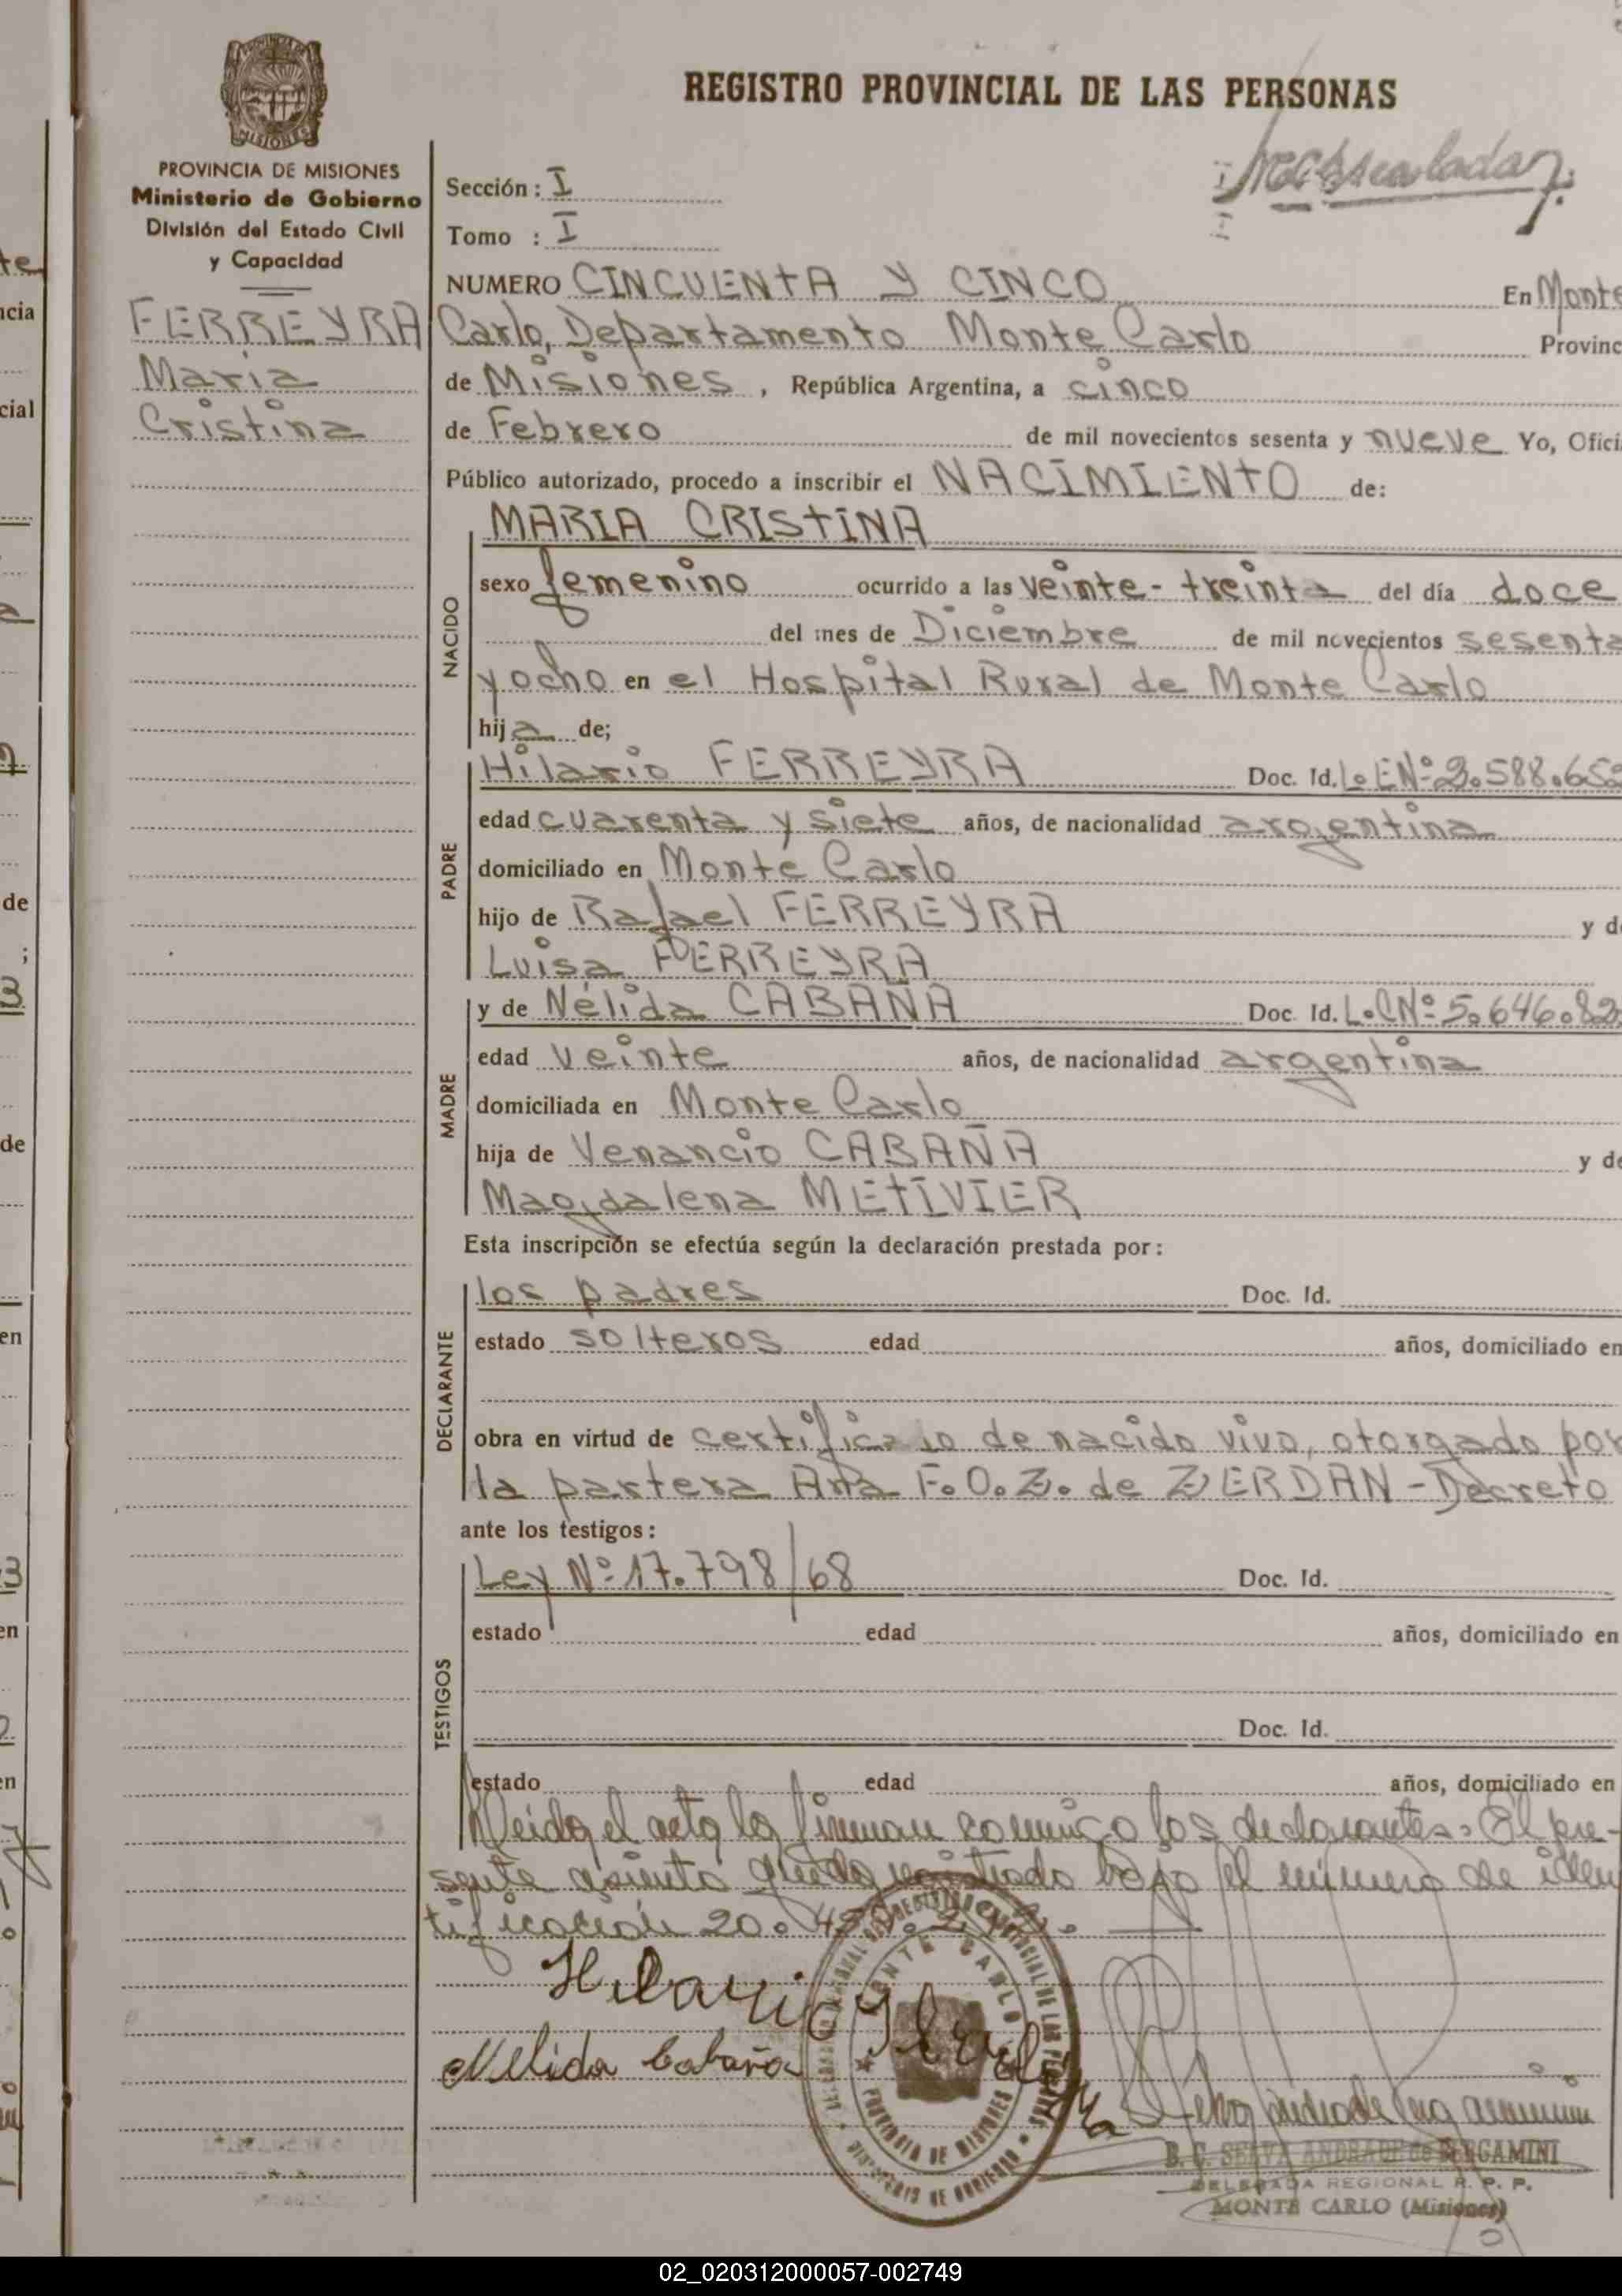 REGISTRO PROVINCIAL DE LAS PERSONAS
PROVINCIA DE MISIONES
Ministerio de Gobierno
División del Estado Civil
y Capacidad
FERREYRA
Maria
Cristina
Sección: I
Tomo : I
NUMERO CINCUENTA Y CINCO En Monte
Carlo, Departamento Monte Carlo Provinc
de Misiones, República Argentina, a cinco
de Febrero de mil novecientos sesenta y nueve Yo, Ofici
Público autorizado, procedo a inscribir el NACIMIENTO de:
NACIDO
MARIA CRISTINA
sexo femenino ocurrido a las veinte-treinta del día doce
del mes de Diciembre de mil novecientos sesenta
y ocho en el Hospital Rural de Monte Carlo
hija de;
PADRE
Hilario FERREYRA Doc. Id. L.E.Nº 2.588.65
edad cuarenta y siete años, de nacionalidad argentina
domiciliado en Monte Carlo
hijo de Rafael FERREYRA y d
Luisa FERREYRA
MADRE
y de Nélida CABAÑA Doc. Id. L.C.Nº 5.646.82
edad veinte años, de nacionalidad argentina
domiciliada en Monte Carlo
hija de Venancio CABAÑA y de
Magdalena METIVIER
Esta inscripción se efectúa según la declaración prestada por:
DECLARANTE
los padres Doc. Id.
estado solteros edad años, domiciliado en
obra en virtud de certificado de nacido vivo, otorgado por
la partera Ana F.O.Z. de ZERDAN - Decreto
ante los testigos:
TESTIGOS
Ley Nº 17.798/68 Doc. Id.
estado edad años, domiciliado en
Doc. Id.
estado edad años, domiciliado en
Leida el acta la firman conmigo los declarantes. El pre-
sente asiento queda registrado bajo el número de iden
tificación 20.
Hilario Ferreyra
Nelida Cabaña
MONTE CARLO
PROVINCIA DE MISIONES
MINISTERIO DE GOBIERNO
B. C. SELVA ANDRADE de BERGAMINI
DELEGADA REGIONAL R. P. P.
MONTE CARLO (Misiones)
02_020312000057-002749